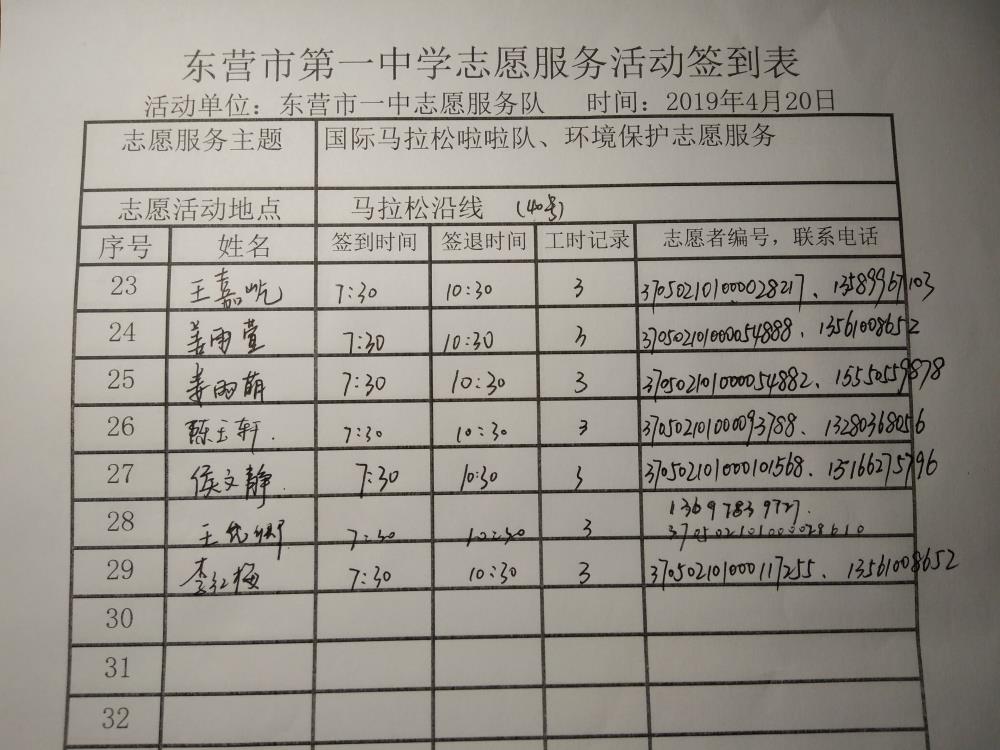 东营市第一中学志愿服务活动签到表
活动单位：东营市一中志愿服务队 时间：2019年4月20日
志愿服务主题 国际马拉松啦啦队、环境保护志愿服务
志愿活动地点 马拉松沿线 （40号）
序号 姓名 签到时间 签退时间 工时记录 志愿者编号，联系电话
23 王嘉屹 7:30 10:30 3 370502101000028217、13589967103
24 姜雨萱 7:30 10:30 3 370502101000054888、13561008652
25 姜雨萌 7:30 10:30 3 370502101000054882、15550559878
26 陈士轩 7:30 10:30 3 370502101000093788、13280368056
27 侯文静 7:30 10:30 3 3705021010000101568、15166275796
28 7:30 10:30 3 13697839727.
3705021010000028610
29 李红梅 7:30 10:30 3 3705021010000117255、13561008652
30
31
32